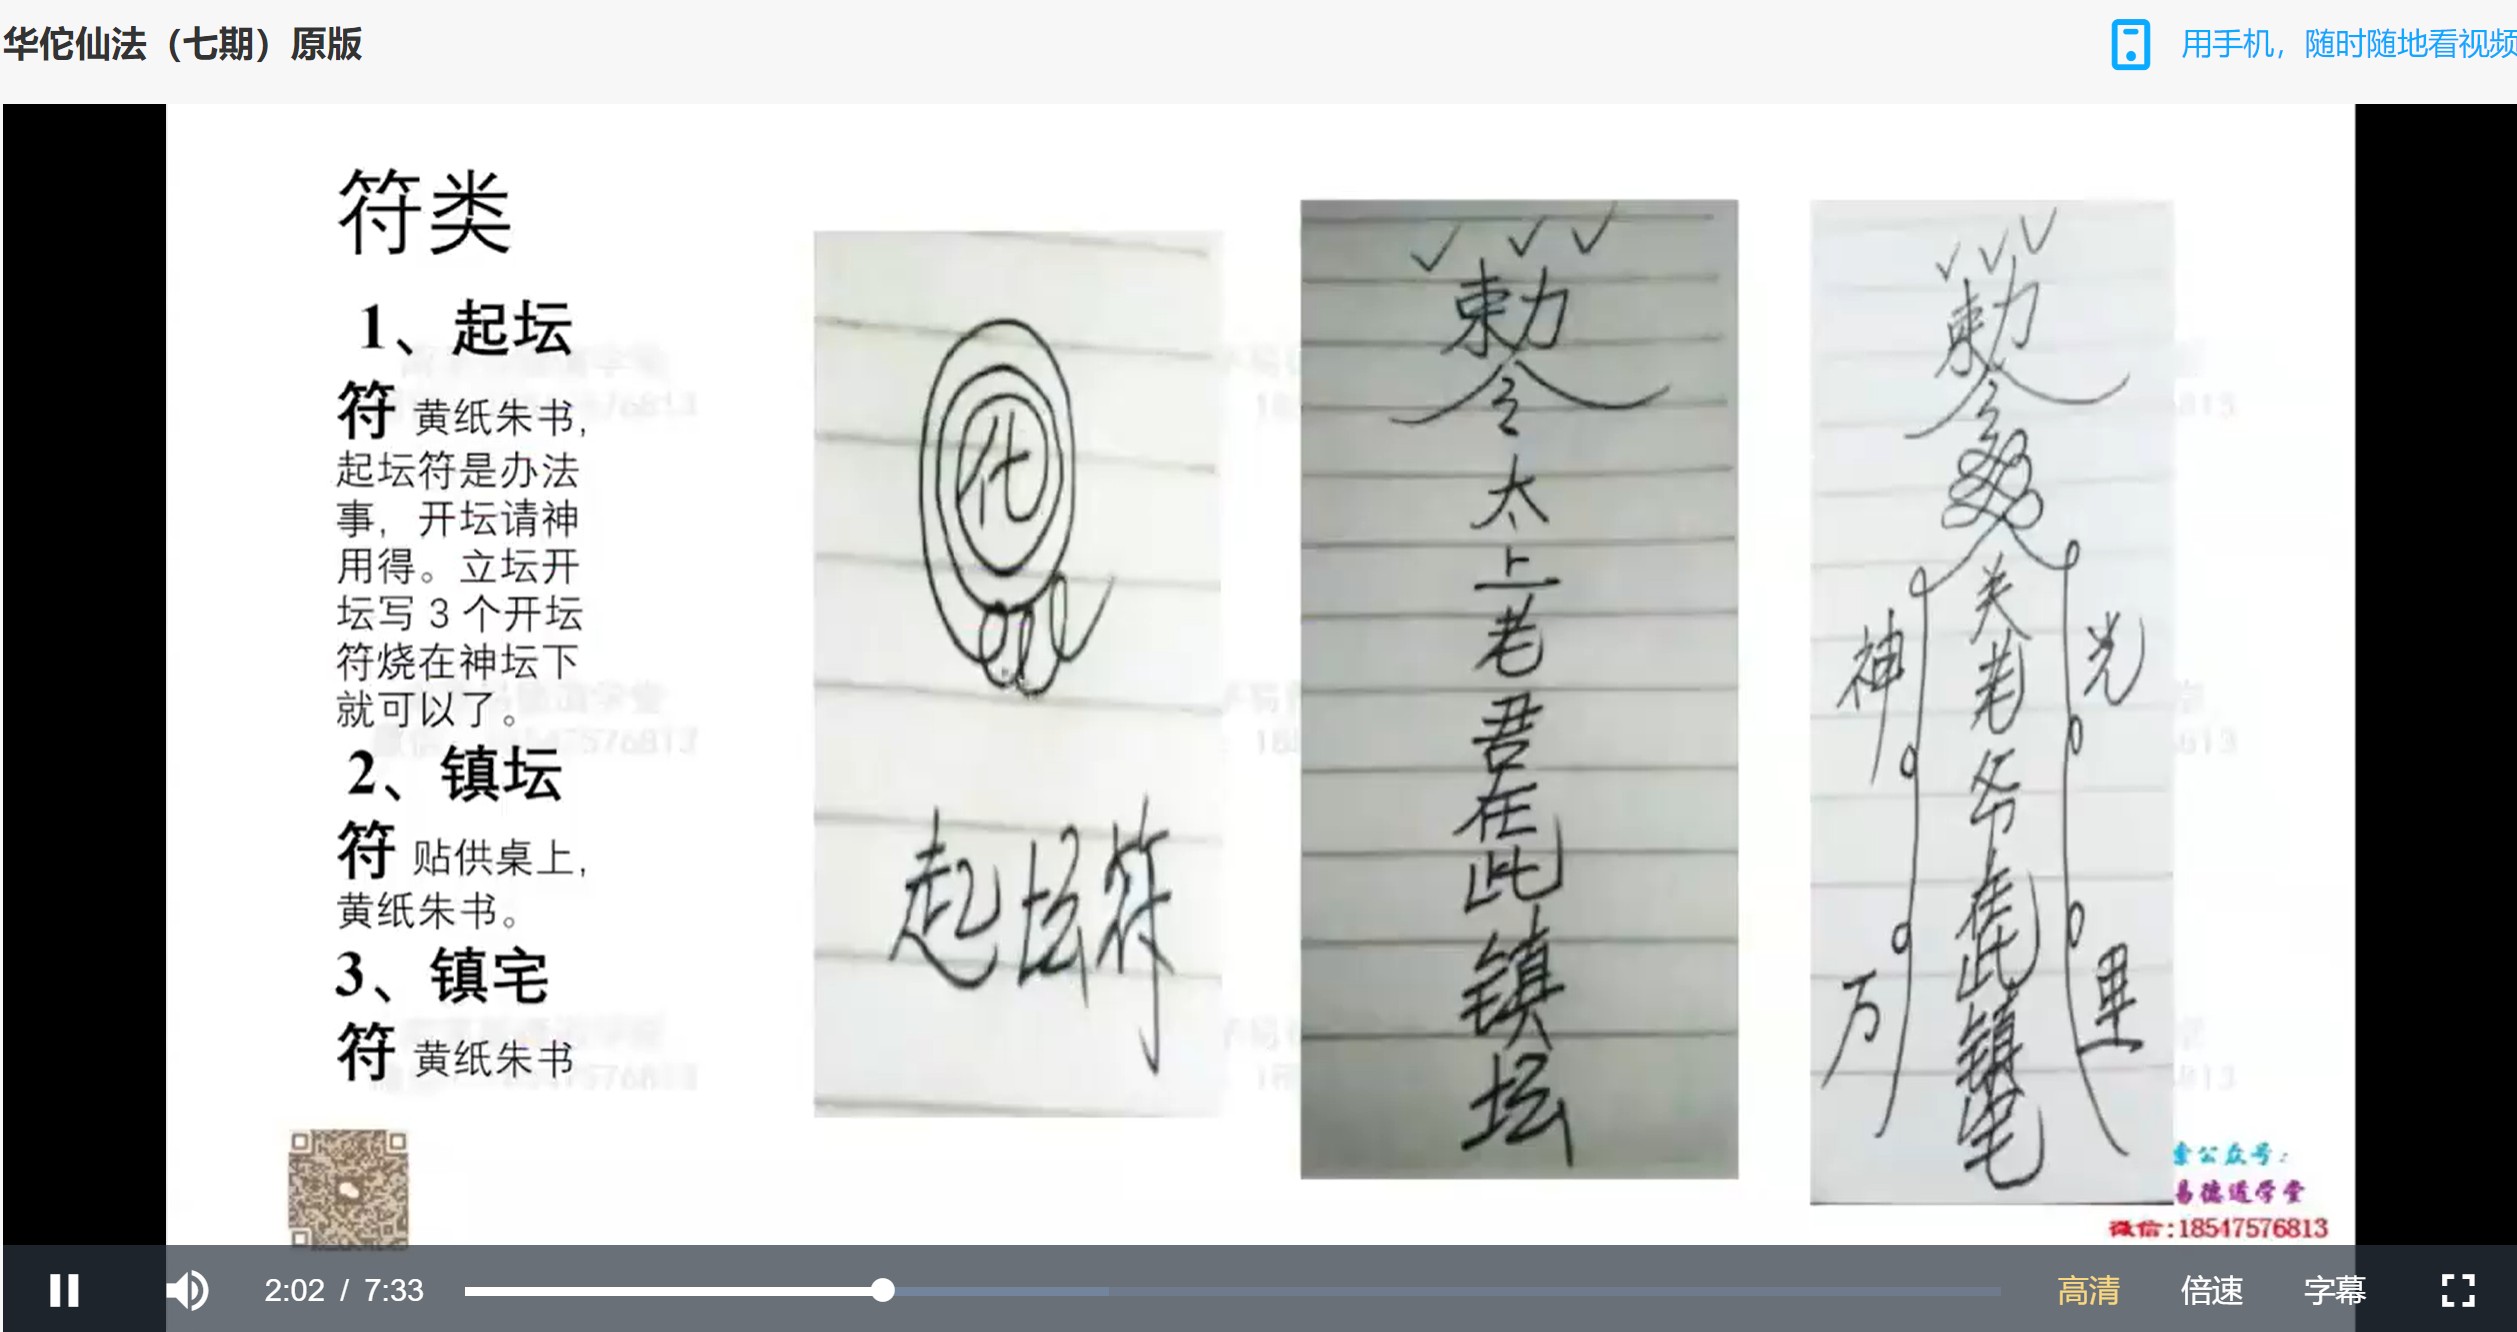 华佗仙法（七期）原版
用手机，随时随地看视频
符类
1、起坛
符 黄纸朱书，
起坛符是办法
事，开坛请神
用得。立坛开
坛写 3 个开坛
符烧在神坛下
就可以了。
2、镇坛
符 贴供桌上，
黄纸朱书。
3、镇宅
符 黄纸朱书
化
起坛符
敕
令
太
上
老
君
在
此
镇
坛
敕
令
关
老
爷
在
此
镇
宅
神
光
万
里
公众号：
易德道学堂
微信:18547576813
2:02 / 7:33
高清
倍速
字幕